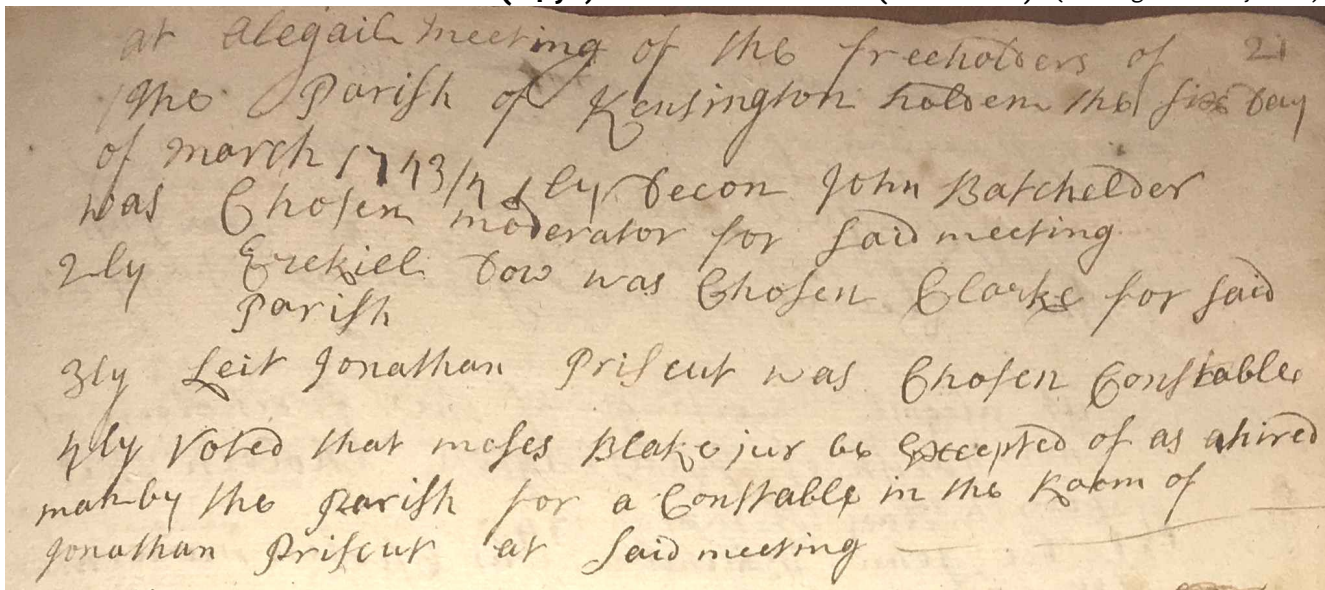 at alegail meeting of the freeholders of 21
the Parish of Kensington holden the six Day
of march 1743/4 1ly Decon John Batchelder
was Chosen moderator for said meeting
2ly Ezekiell Dow was Chosen Clarke for said
Parish
3ly Leit Jonathan Priscut was Chosen Constable
4ly Voted that moses Blake jur be Excepted of as ahired
man by the parish for a Constable in the Room of
Jonathan Priscut at said meeting